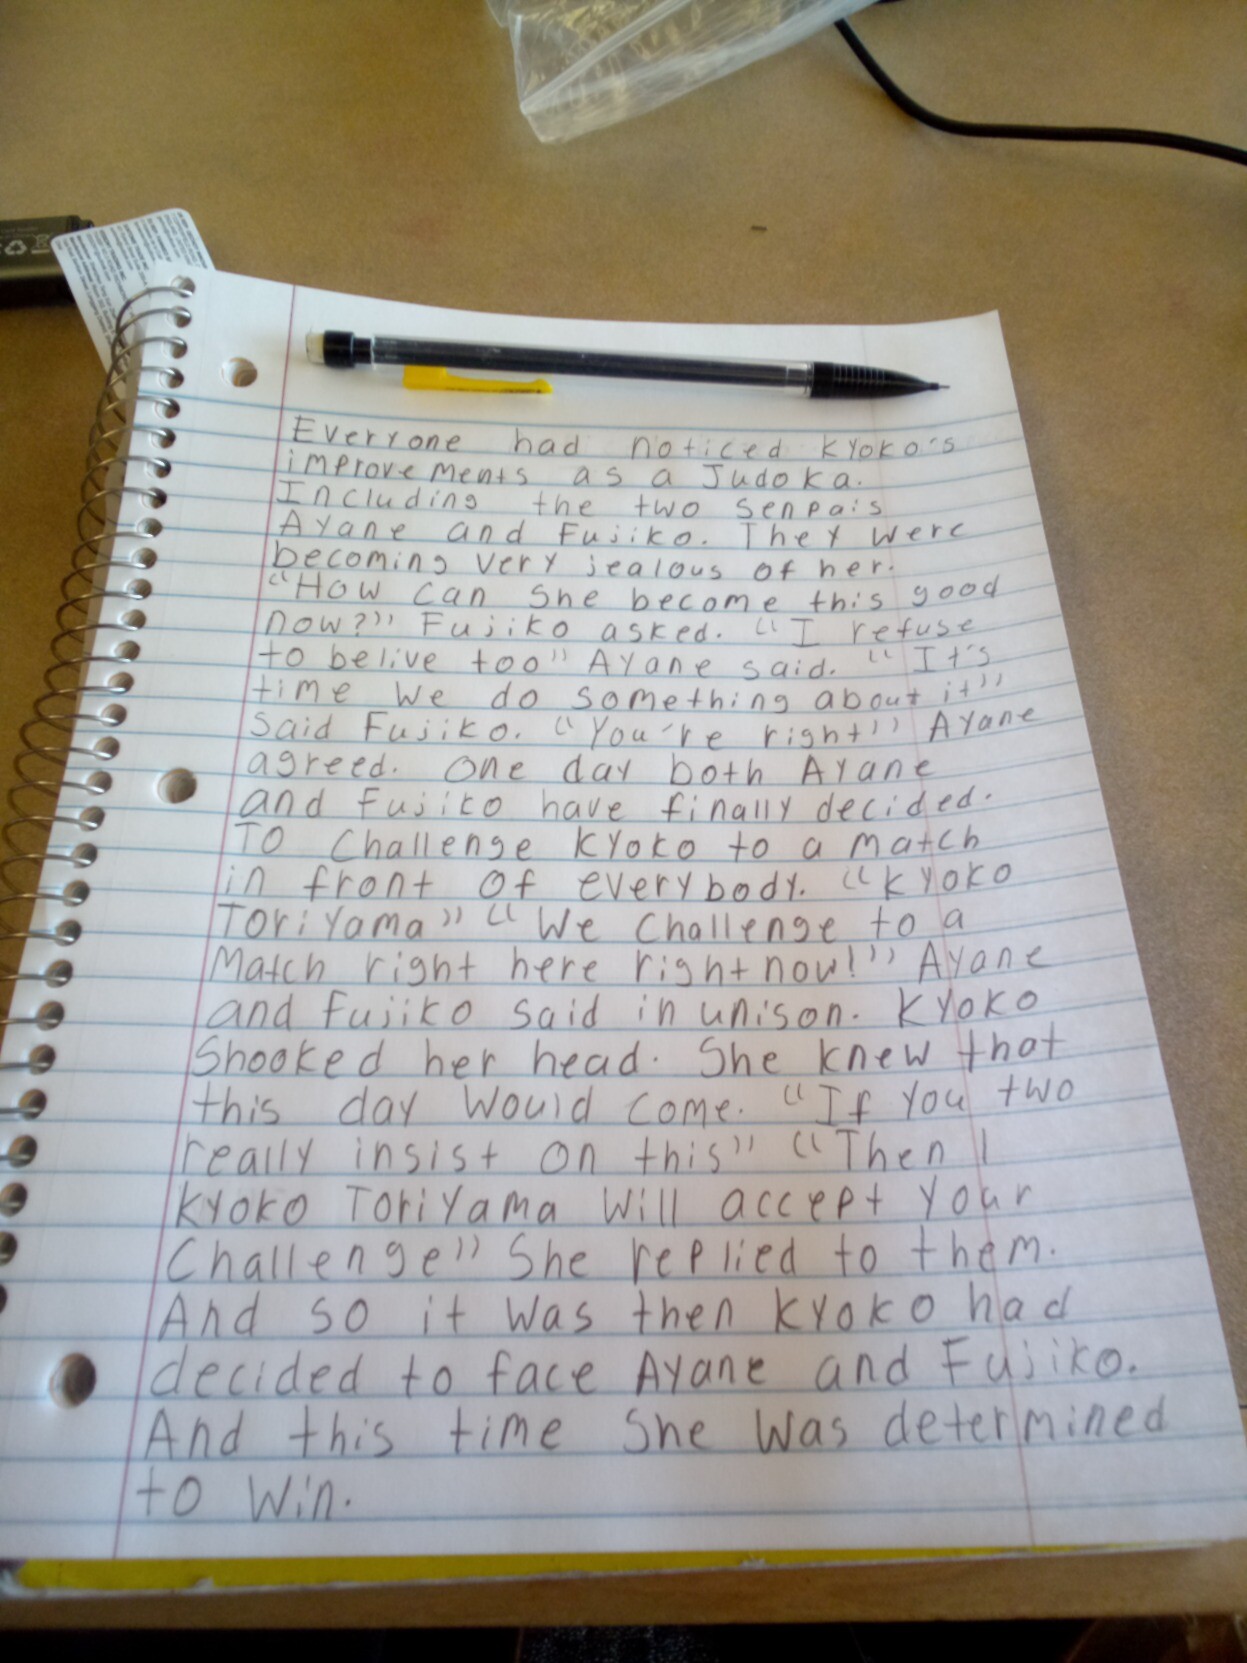 Everyone had noticed Kyoko's
improvements as a Judoka.
Including the two senpais
Ayane and Fujiko. They were
becoming very jealous of her.
"How can she become this good
now?" Fujiko asked. "I refuse
to belive too" Ayane said. "It's
time we do something about it"
said Fujiko. "You're right" Ayane
agreed. One day both Ayane
and Fujiko have finally decided.
To challenge Kyoko to a match
in front of everybody. "Kyoko
Toriyama" "We challenge to a
match right here right now!" Ayane
and Fujiko said in unison. Kyoko
shooked her head. She knew that
this day would come. "If you two
really insist on this" "Then I
Kyoko Toriyama will accept your
challenge" She replied to them.
And so it was then Kyoko had
decided to face Ayane and Fujiko.
And this time she was determined
to win.